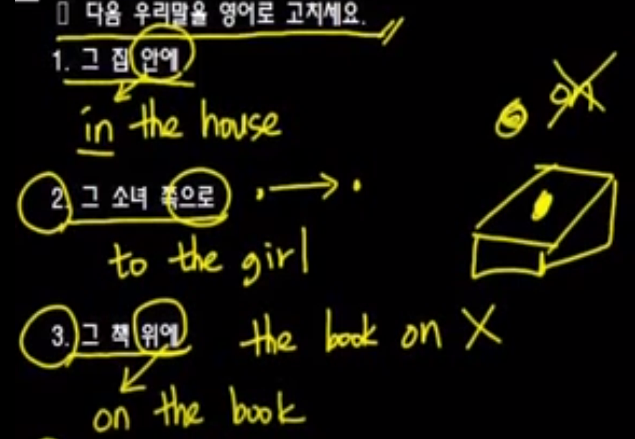 ▯ 다음 우리말을 영어로 고치세요.
1. 그 집 안에
in the house
on
2. 그 소녀 쪽으로
to the girl
3. 그 책 위에 the book on X
on the book